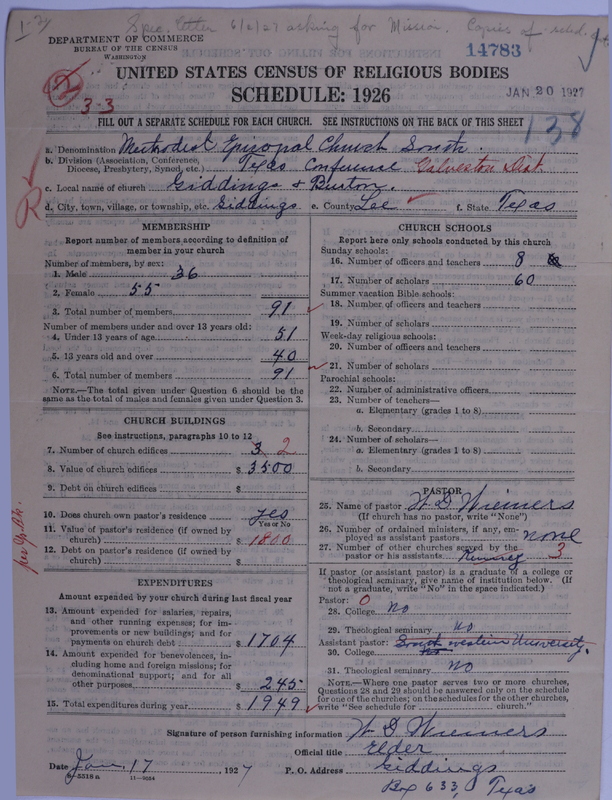 1-24
Spec. letter 6/2/27 asking for Mission. Copies of sched.
DEPARTMENT OF COMMERCE
BUREAU OF THE CENSUS
WASHINGTON
14783
UNITED STATES CENSUS OF RELIGIOUS BODIES
SCHEDULE: 1926
JAN 20 1927
2
3-3
FILL OUT A SEPARATE SCHEDULE FOR EACH CHURCH. SEE INSTRUCTIONS ON THE BACK OF THIS SHEET
138
a. Denomination Methodist Episcopal Church South.
b. Division (Association, Conference, Diocese, Presbytery, Synod, etc.) Texas Conference Galveston Dist
c. Local name of church Giddings & Burton.
d. City, town, village, or township, etc. Giddings e. County Lee f. State Texas
R
MEMBERSHIP
Report number of members according to definition of member in your church
Number of members, by sex:
1. Male 36
2. Female 55
3. Total number of members 91
Number of members under and over 13 years old:
4. Under 13 years of age 51
5. 13 years old and over 40
6. Total number of members 91
NOTE.—The total given under Question 6 should be the same as the total of males and females given under Question 3.
CHURCH BUILDINGS
See instructions, paragraphs 10 to 12
7. Number of church edifices 3 2
8. Value of church edifices $ 3500
9. Debt on church edifices $
10. Does church own pastor's residence yes
Yes or No
11. Value of pastor's residence (if owned by church) $ 1800
12. Debt on pastor's residence (if owned by church) $
EXPENDITURES
Amount expended by your church during last fiscal year
13. Amount expended for salaries, repairs, and other running expenses; for improvements or new buildings; and for payments on church debt $ 1704
14. Amount expended for benevolences, including home and foreign missions; for denominational support; and for all other purposes $ 245
15. Total expenditures during year $ 1949
CHURCH SCHOOLS
Report here only schools conducted by this church
Sunday schools:
16. Number of officers and teachers 8
17. Number of scholars 60
Summer vacation Bible schools:
18. Number of officers and teachers
19. Number of scholars
Week-day religious schools:
20. Number of officers and teachers
21. Number of scholars
Parochial schools:
22. Number of administrative officers
23. Number of teachers—
a. Elementary (grades 1 to 8)
b. Secondary
24. Number of scholars—
a. Elementary (grades 1 to 8)
b. Secondary
PASTOR
25. Name of pastor W D Wiemers
(If church has no pastor, write "None")
26. Number of ordained ministers, if any, employed as assistant pastors none
27. Number of other churches served by the pastor or his assistants 3
If pastor (or assistant pastor) is a graduate of a college or theological seminary, give name of institution below. (If not a graduate, write "No" in the space indicated.)
Pastor: 0
28. College No
29. Theological seminary No
Assistant pastor: Southwestern University.
30. College
31. Theological seminary No
NOTE.—Where one pastor serves two or more churches, Questions 28 and 29 should be answered only on the schedule for one of the churches; on the schedules for the other churches, write "See schedule for church."
Signature of person furnishing information W D Wiemers
Official title Elder
Date Jan. 17, 1927
P. O. Address Giddings
Box 633, Texas
8-5518 a
11-9324